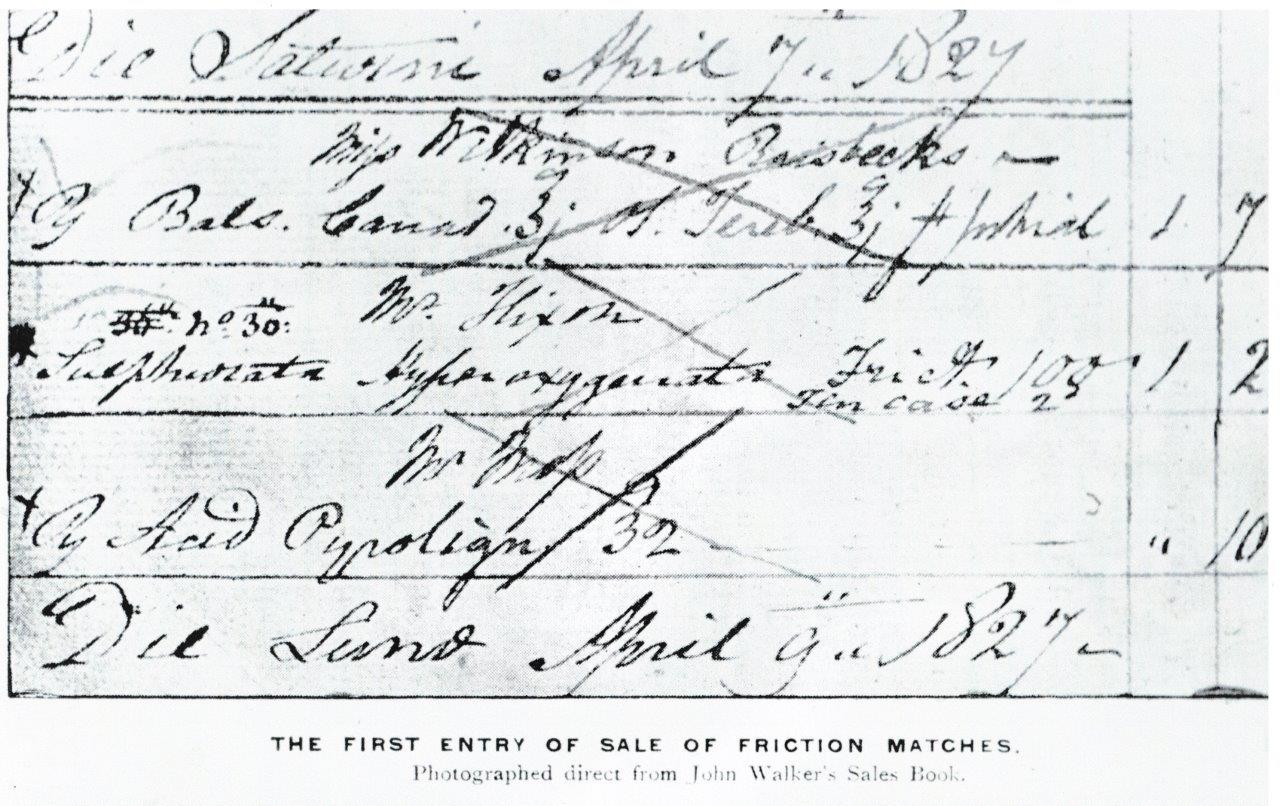 Die Saturni April 7 .. 1827
Miss Wilkinson Raisbecks —
Bals. Canad. ʒj Ol. Tereb. ʒj & phial 1 7
No. 30.
Mr. Hixon
Sulphurata Hyperoxygenata Frict. 100 1 2
Tin case 2d
Mr
Acid Pyrolign 32 " 10
Die Lunæ April 9 .. 1827 –
THE FIRST ENTRY OF SALE OF FRICTION MATCHES.
Photographed direct from John Walker's Sales Book.